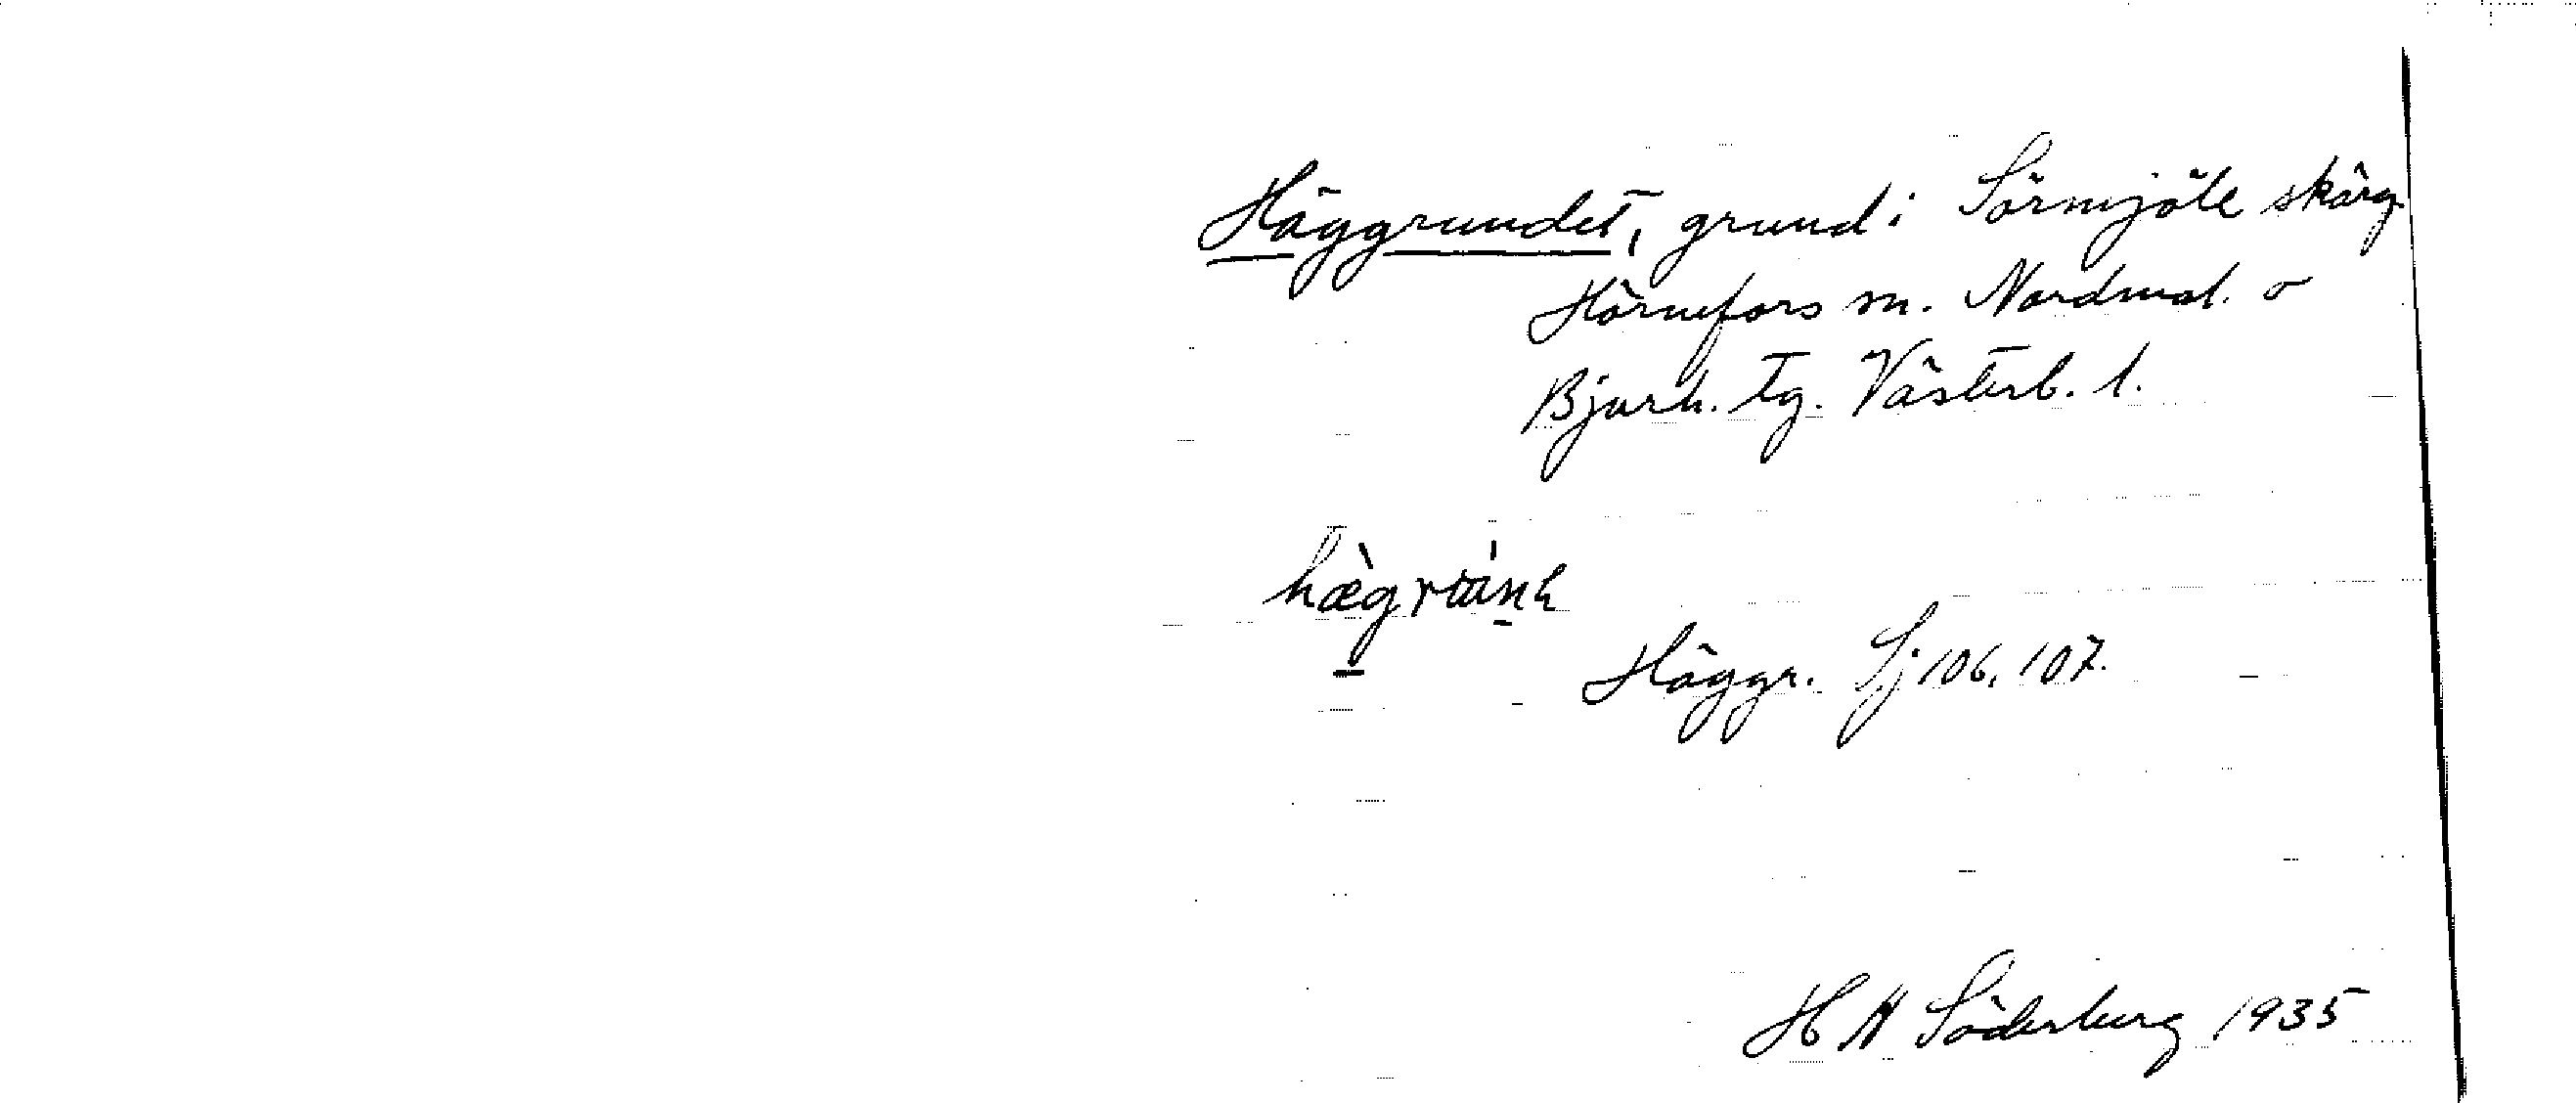 Häggrundet, grund i Sörmjöle skärg.
Hörnefors sn. Nordmal. o
Bjurh. tg. Västerb. l.
Häggr. Sj 106, 107.
H H Söderberg 1935